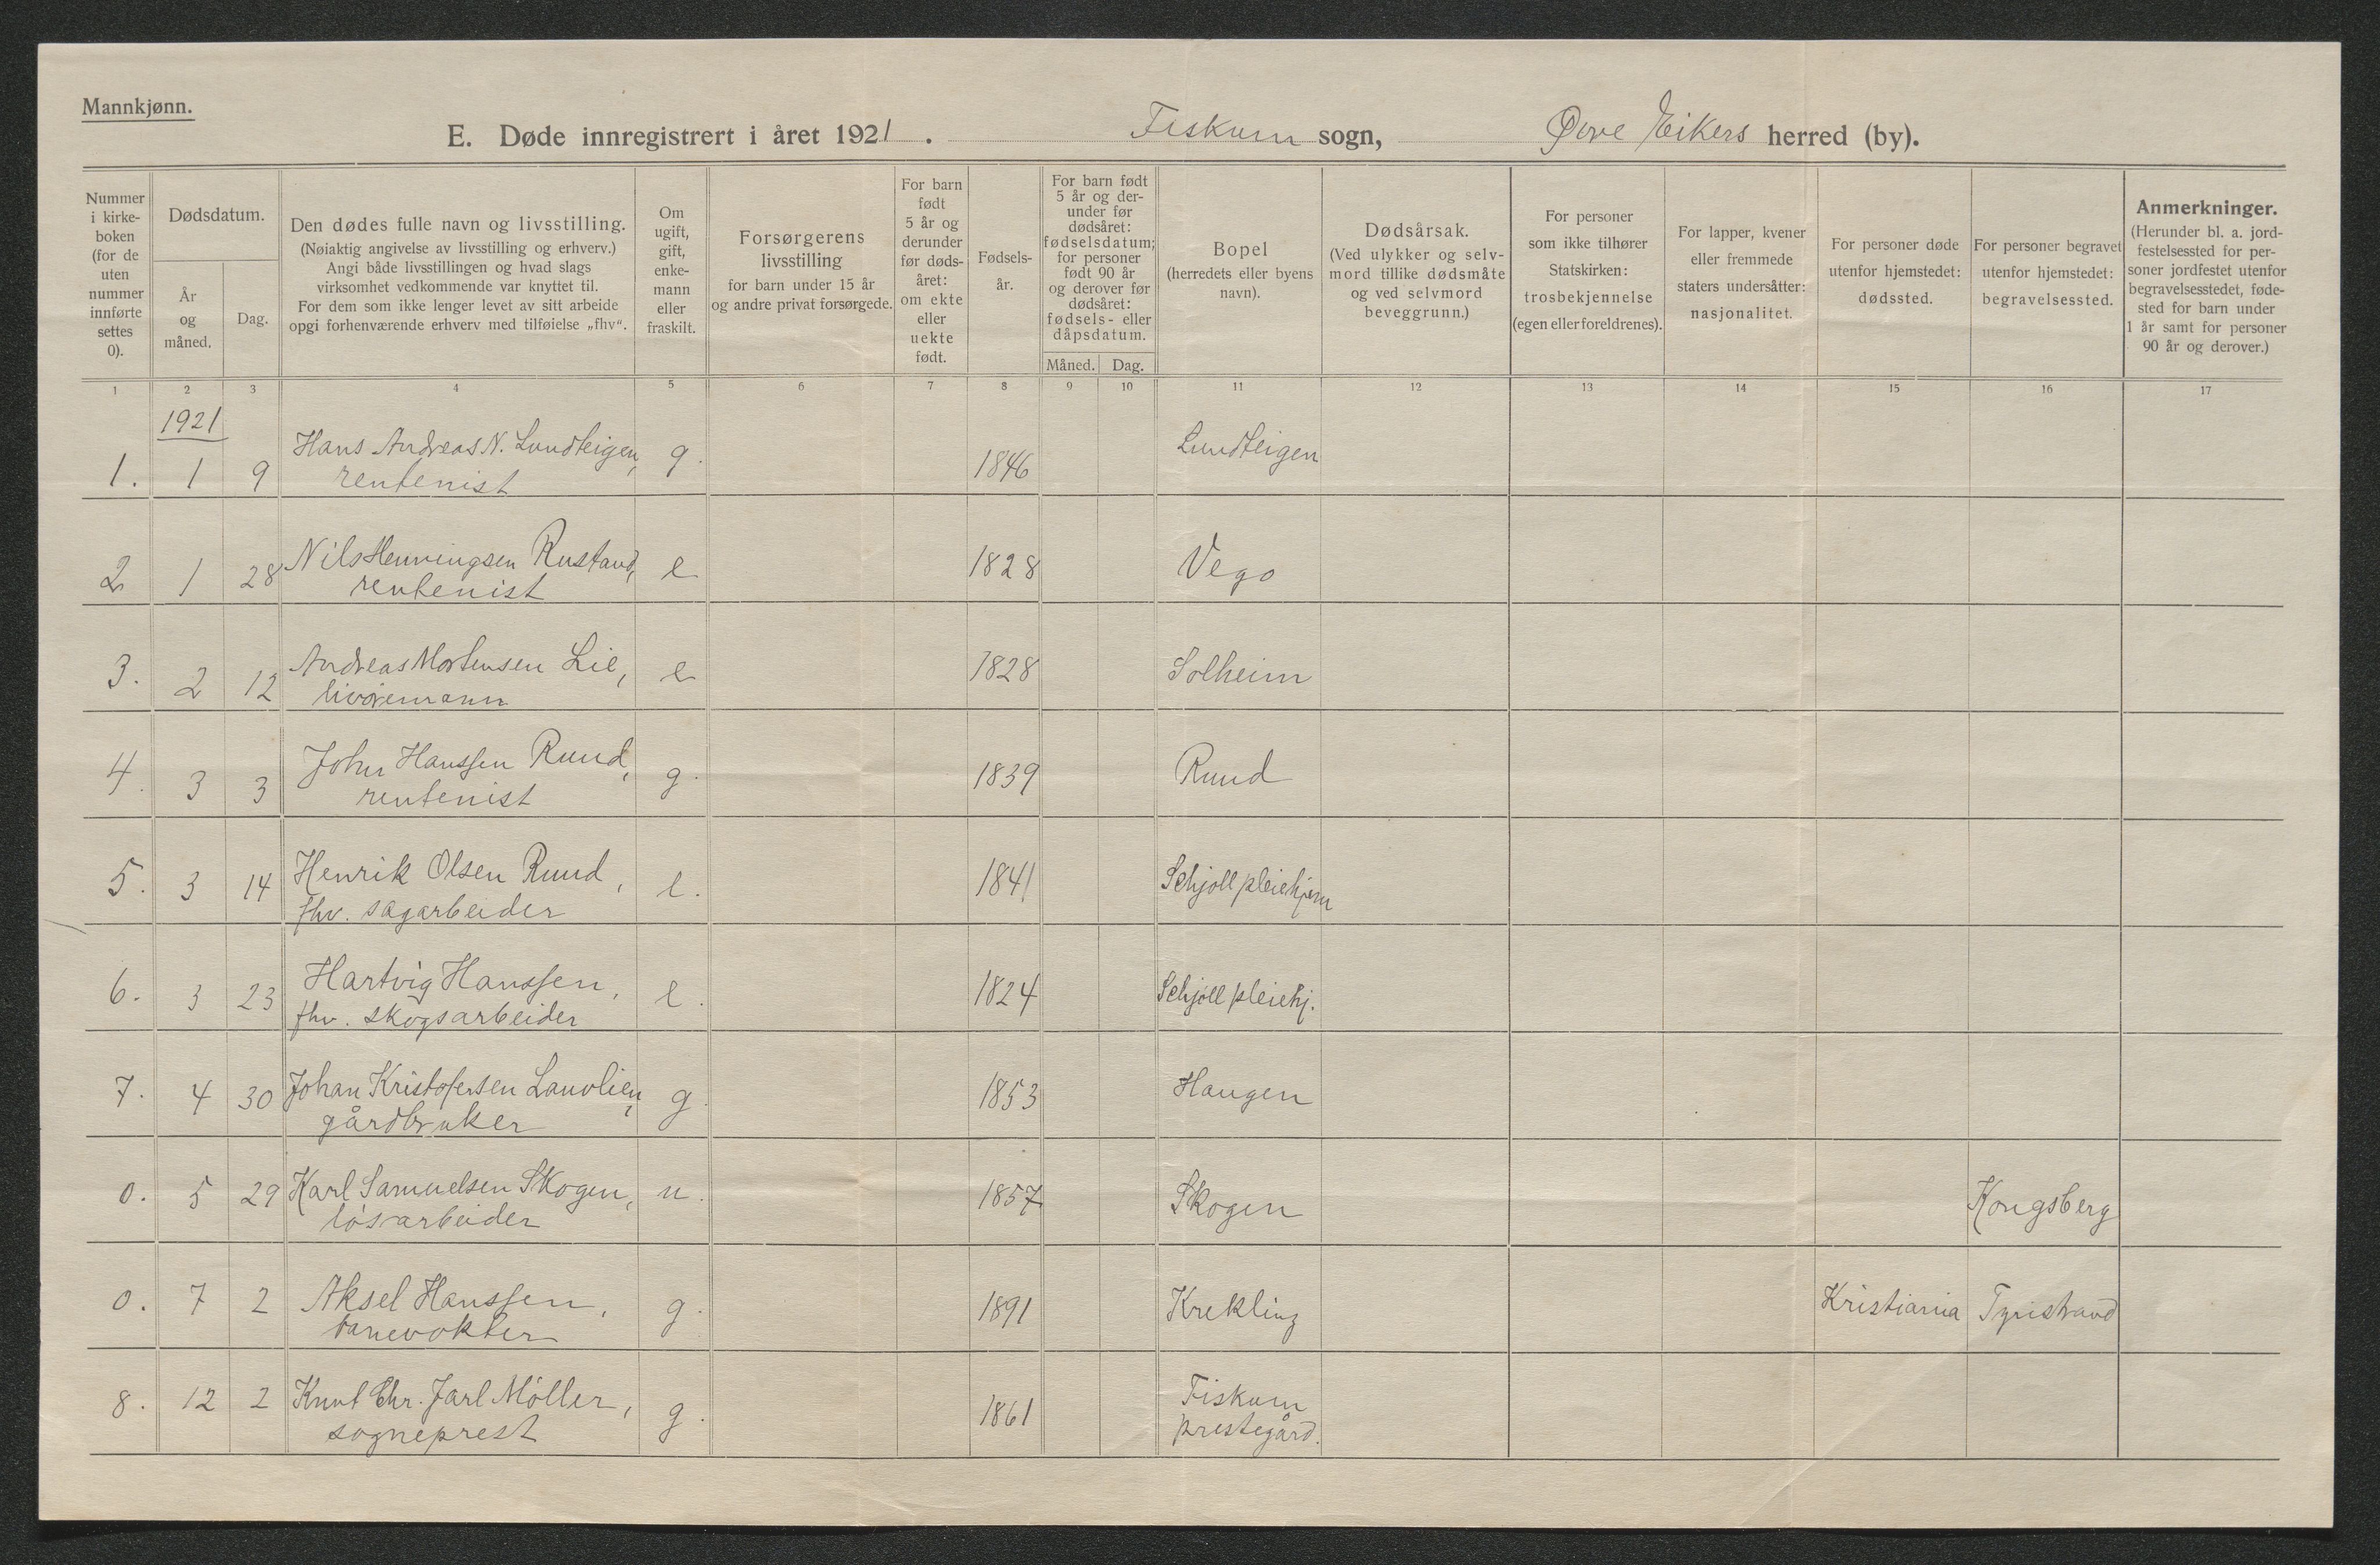 Mannkjønn.
E. Døde innregistrert i året 1921. Fiskum sogn, Øvre Eikers herred (by).
Nummer i kirkeboken (for de uten nummer innførte settes 0).
Dødsdatum.
År og måned.
Dag.
Den dødes fulle navn og livsstilling.
(Nøiaktig angivelse av livsstilling og erhverv.)
Angi både livsstillingen og hvad slags
virksomhet vedkommende var knyttet til.
For dem som ikke lenger levet av sitt arbeide
opgi forhenværende erhverv med tilføielse „fhv“.
Om ugift, gift, enkemann eller fraskilt.
Forsørgerens livsstilling
for barn under 15 år
og andre privat forsørgede.
For barn født 5 år og derunder før dødsåret: om ekte eller uekte født.
Fødselsår.
For barn født 5 år og derunder før dødsåret: fødselsdatum; for personer født 90 år og derover før dødsåret: fødsels- eller dåpsdatum.
Måned. Dag.
Bopel
(herredets eller byens navn).
Dødsårsak.
(Ved ulykker og selvmord tillike dødsmåte og ved selvmord beveggrunn.)
For personer som ikke tilhører Statskirken: trosbekjennelse (egen eller foreldrenes).
For lapper, kvener eller fremmede staters undersåtter: nasjonalitet.
For personer døde utenfor hjemstedet: dødssted.
For personer begravet utenfor hjemstedet: begravelsessted.
Anmerkninger.
(Herunder bl. a. jordfestelsessted for personer jordfestet utenfor begravelsesstedet, fødested for barn under 1 år samt for personer 90 år og derover.)
1 2 3 4 5 6 7 8 9 10 11 12 13 14 15 16 17
1921
1. 1 9 Hans Andreas N. Lundteigen, g. 1846 Lundteigen
rentenist
2 1 28 Nils Henningsen Rustand, e 1828 Vego
rentenist
3. 2 12 Andreas Mortensen Lie, e 1828 Solheim
livøremann
4. 3 3 John Hanssen Ruud, g. 1839 Ruud
rentenist
5. 3 14 Henrik Olsen Ruud, e. 1841 Schjøll pleiehjem
fhv. sagarbeider
6. 3 23 Hartvig Hanssen, e. 1824 Schjøll pleiehj.
fhv. skogsarbeider
7. 4 30 Johan Kristofersen Lauvlien, g. 1853 Haugen
gårdbruker
0. 5 29 Karl Samuelsen Skogen, u. 1857 Skogen Kongsberg
løsarbeider
0. 7 2 Aksel Hanssen, g. 1891 Krekling Kristiania Tyristrand
banevokter
8. 12 2 Knut Chr. Jarl Møller, g. 1861 Fiskum
sogneprest prestegård.